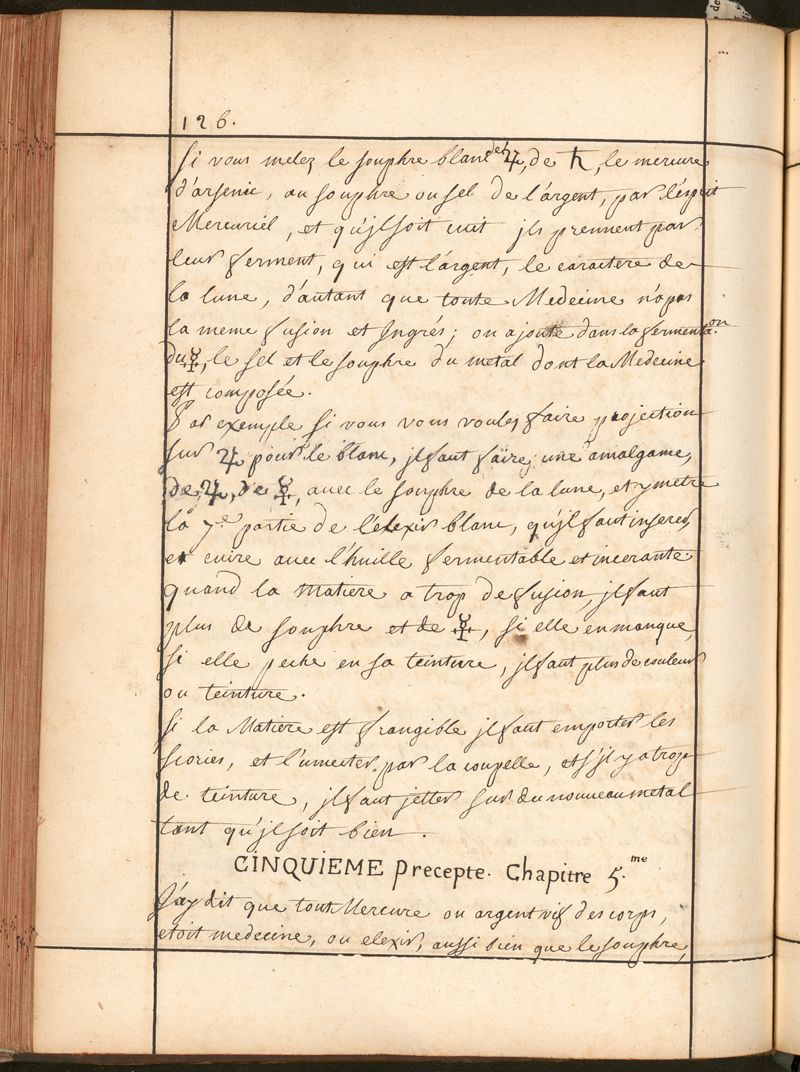 126.
Si vous melez le souphre blanc de ♃, de ♄, le mercure
d'arsenic, au souphre ou sel de l'argent, par l'esprit
Mercuriel, et qu'jl soit cuit jls prennent par
leur ferment, qui est l'argent, le caractere de
la lune, d'autant que toute Medecine n'a pas
la meme fusion et Ingrés; on ajoute dans la fermentaon.
du ☿, le sel et le souphre du metal dont la Medecine
est composée.
Par exemple si vous vous voulez faire projection
sur ♃ pour le blanc, jl faut faire, une amalgame,
de ♃, de ☿, avec le souphre de la lune, et y metre
la 7.e partie de l'elexir blanc, qu'jl faut inserer,
et cuire avec l'huille fermentable et incerante
quand la Matiere a trop de fusion, jl faut
plus de souphre et de ☿, si elle en manque,
si elle peche en sa teinture, jl faut plus de couleur
ou teinture.
Si la Matiere est frangible jl faut emporter les
scories, et l'umecter par la coupelle, et s'jl y a trop
de teinture, jl faut jetter sur du nouveau metal
tant qu'jl soit bien.
CINQUIEME Precepte. Chapitre 5.me
J'ay dit que tout Mercure ou argent vif des corps,
etoit medecine, ou elexir, aussi bien que le souphre,